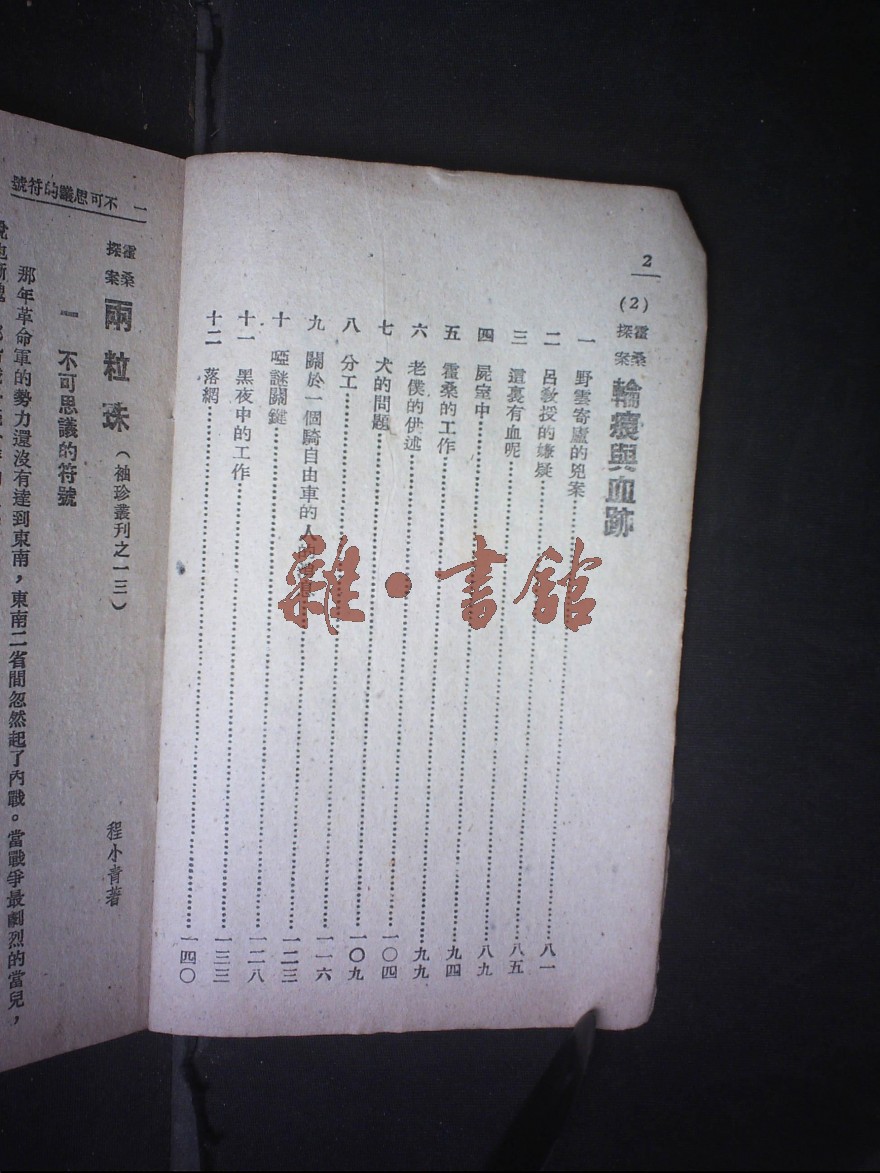 2
(2) 霍桑探案 輪痕與血跡
一 野雲寄廬的兇案……八一
二 呂敎授的嫌疑……八五
三 這裏有血呢……八九
四 屍室中……九四
五 霍桑的工作……九九
六 老僕的供述……一〇四
七 犬的問題……一〇九
八 分工……一一六
九 關於一個騎自由車的人
十 啞謎關鍵……一二三
十一 黑夜中的工作……一二八
十二 落網……一三三
一四〇
雜·書館
一 不可思議的符號
霍桑探案 兩粒珠 (袖珍叢刊之一三) 程小青著
一 不可思議的符號
那年革命軍的勢力還沒有達到東南,東南二省間忽然起了內戰。當戰爭最劇烈的當兒,